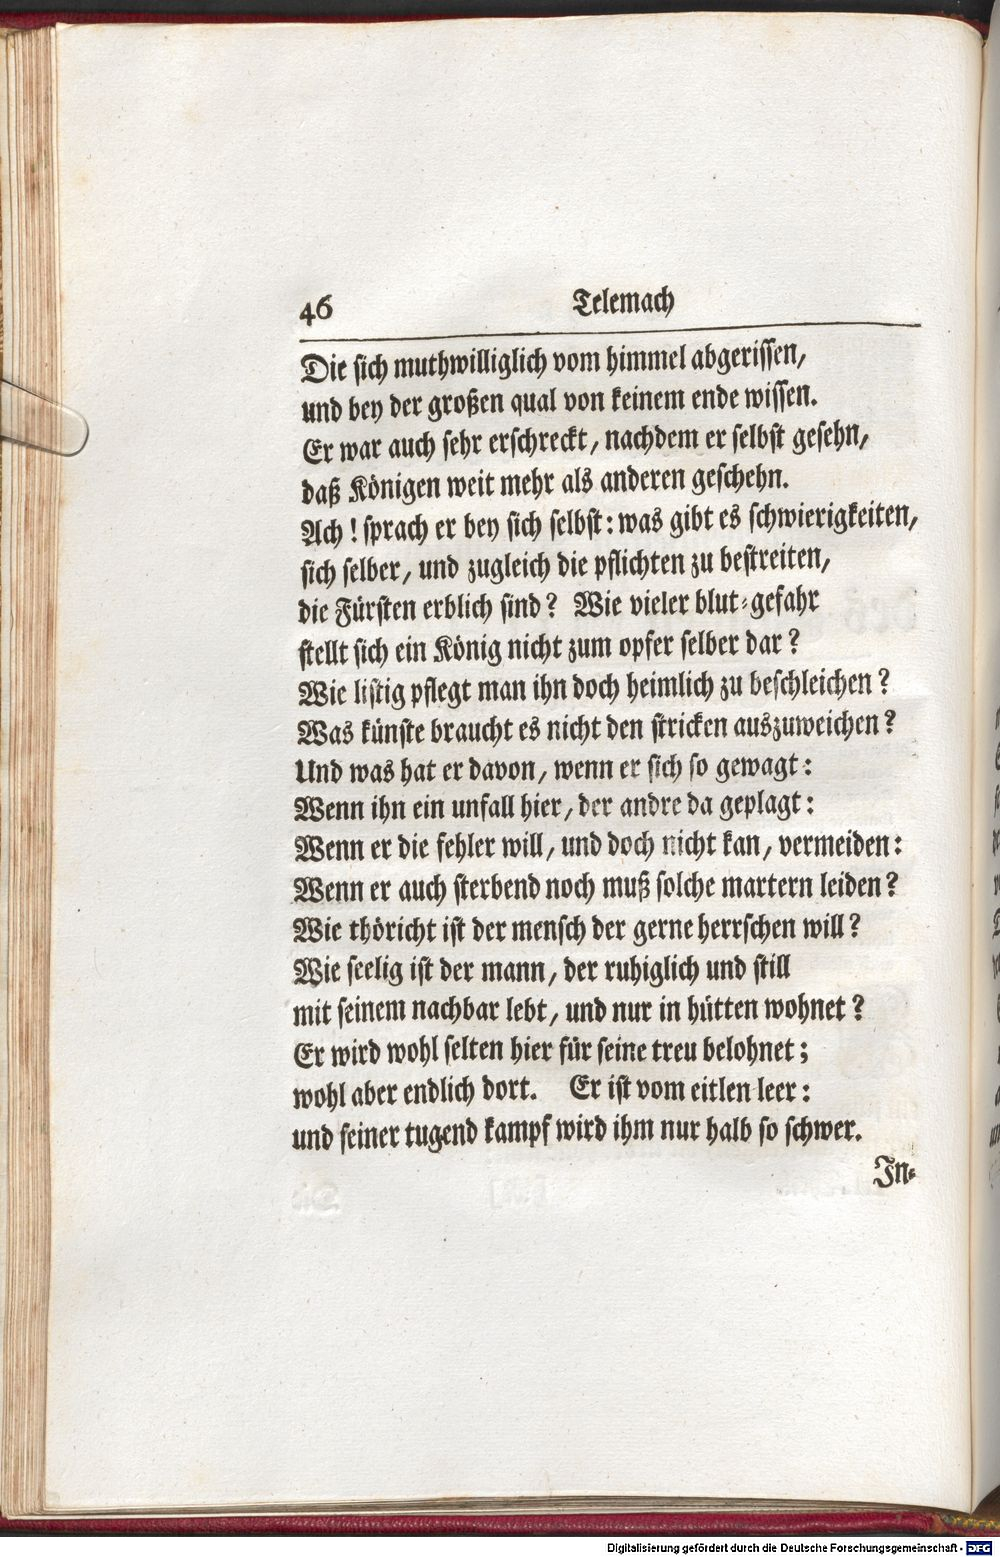 46 Telemach
Die sich muthwilliglich vom himmel abgerissen,
und bey der großen qual von keinem ende wissen.
Er war auch sehr erschreckt, nachdem er selbst gesehn,
daß Königen weit mehr als anderen geschehn.
Ach! sprach er bey sich selbst: was gibt es schwierigkeiten,
sich selber, und zugleich die pflichten zu bestreiten,
die Fürsten erblich sind? Wie vieler blut-gefahr
stellt sich ein König nicht zum opfer selber dar?
Wie listig pflegt man ihn doch heimlich zu beschleichen?
Was künste braucht es nicht den stricken auszuweichen?
Und was hat er davon, wenn er sich so gewagt:
Wenn ihn ein unfall hier, der andre da geplagt:
Wenn er die fehler will, und doch nicht kan, vermeiden:
Wenn er auch sterbend noch muß solche martern leiden?
Wie thöricht ist der mensch der gerne herrschen will?
Wie seelig ist der mann, der ruhiglich und still
mit seinem nachbar lebt, und nur in hütten wohnet?
Er wird wohl selten hier für seine treu belohnet;
wohl aber endlich dort. Er ist vom eitlen leer:
und seiner tugend kampf wird ihm nur halb so schwer.
In-
Digitalisierung gefördert durch die Deutsche Forschungsgemeinschaft - DFG